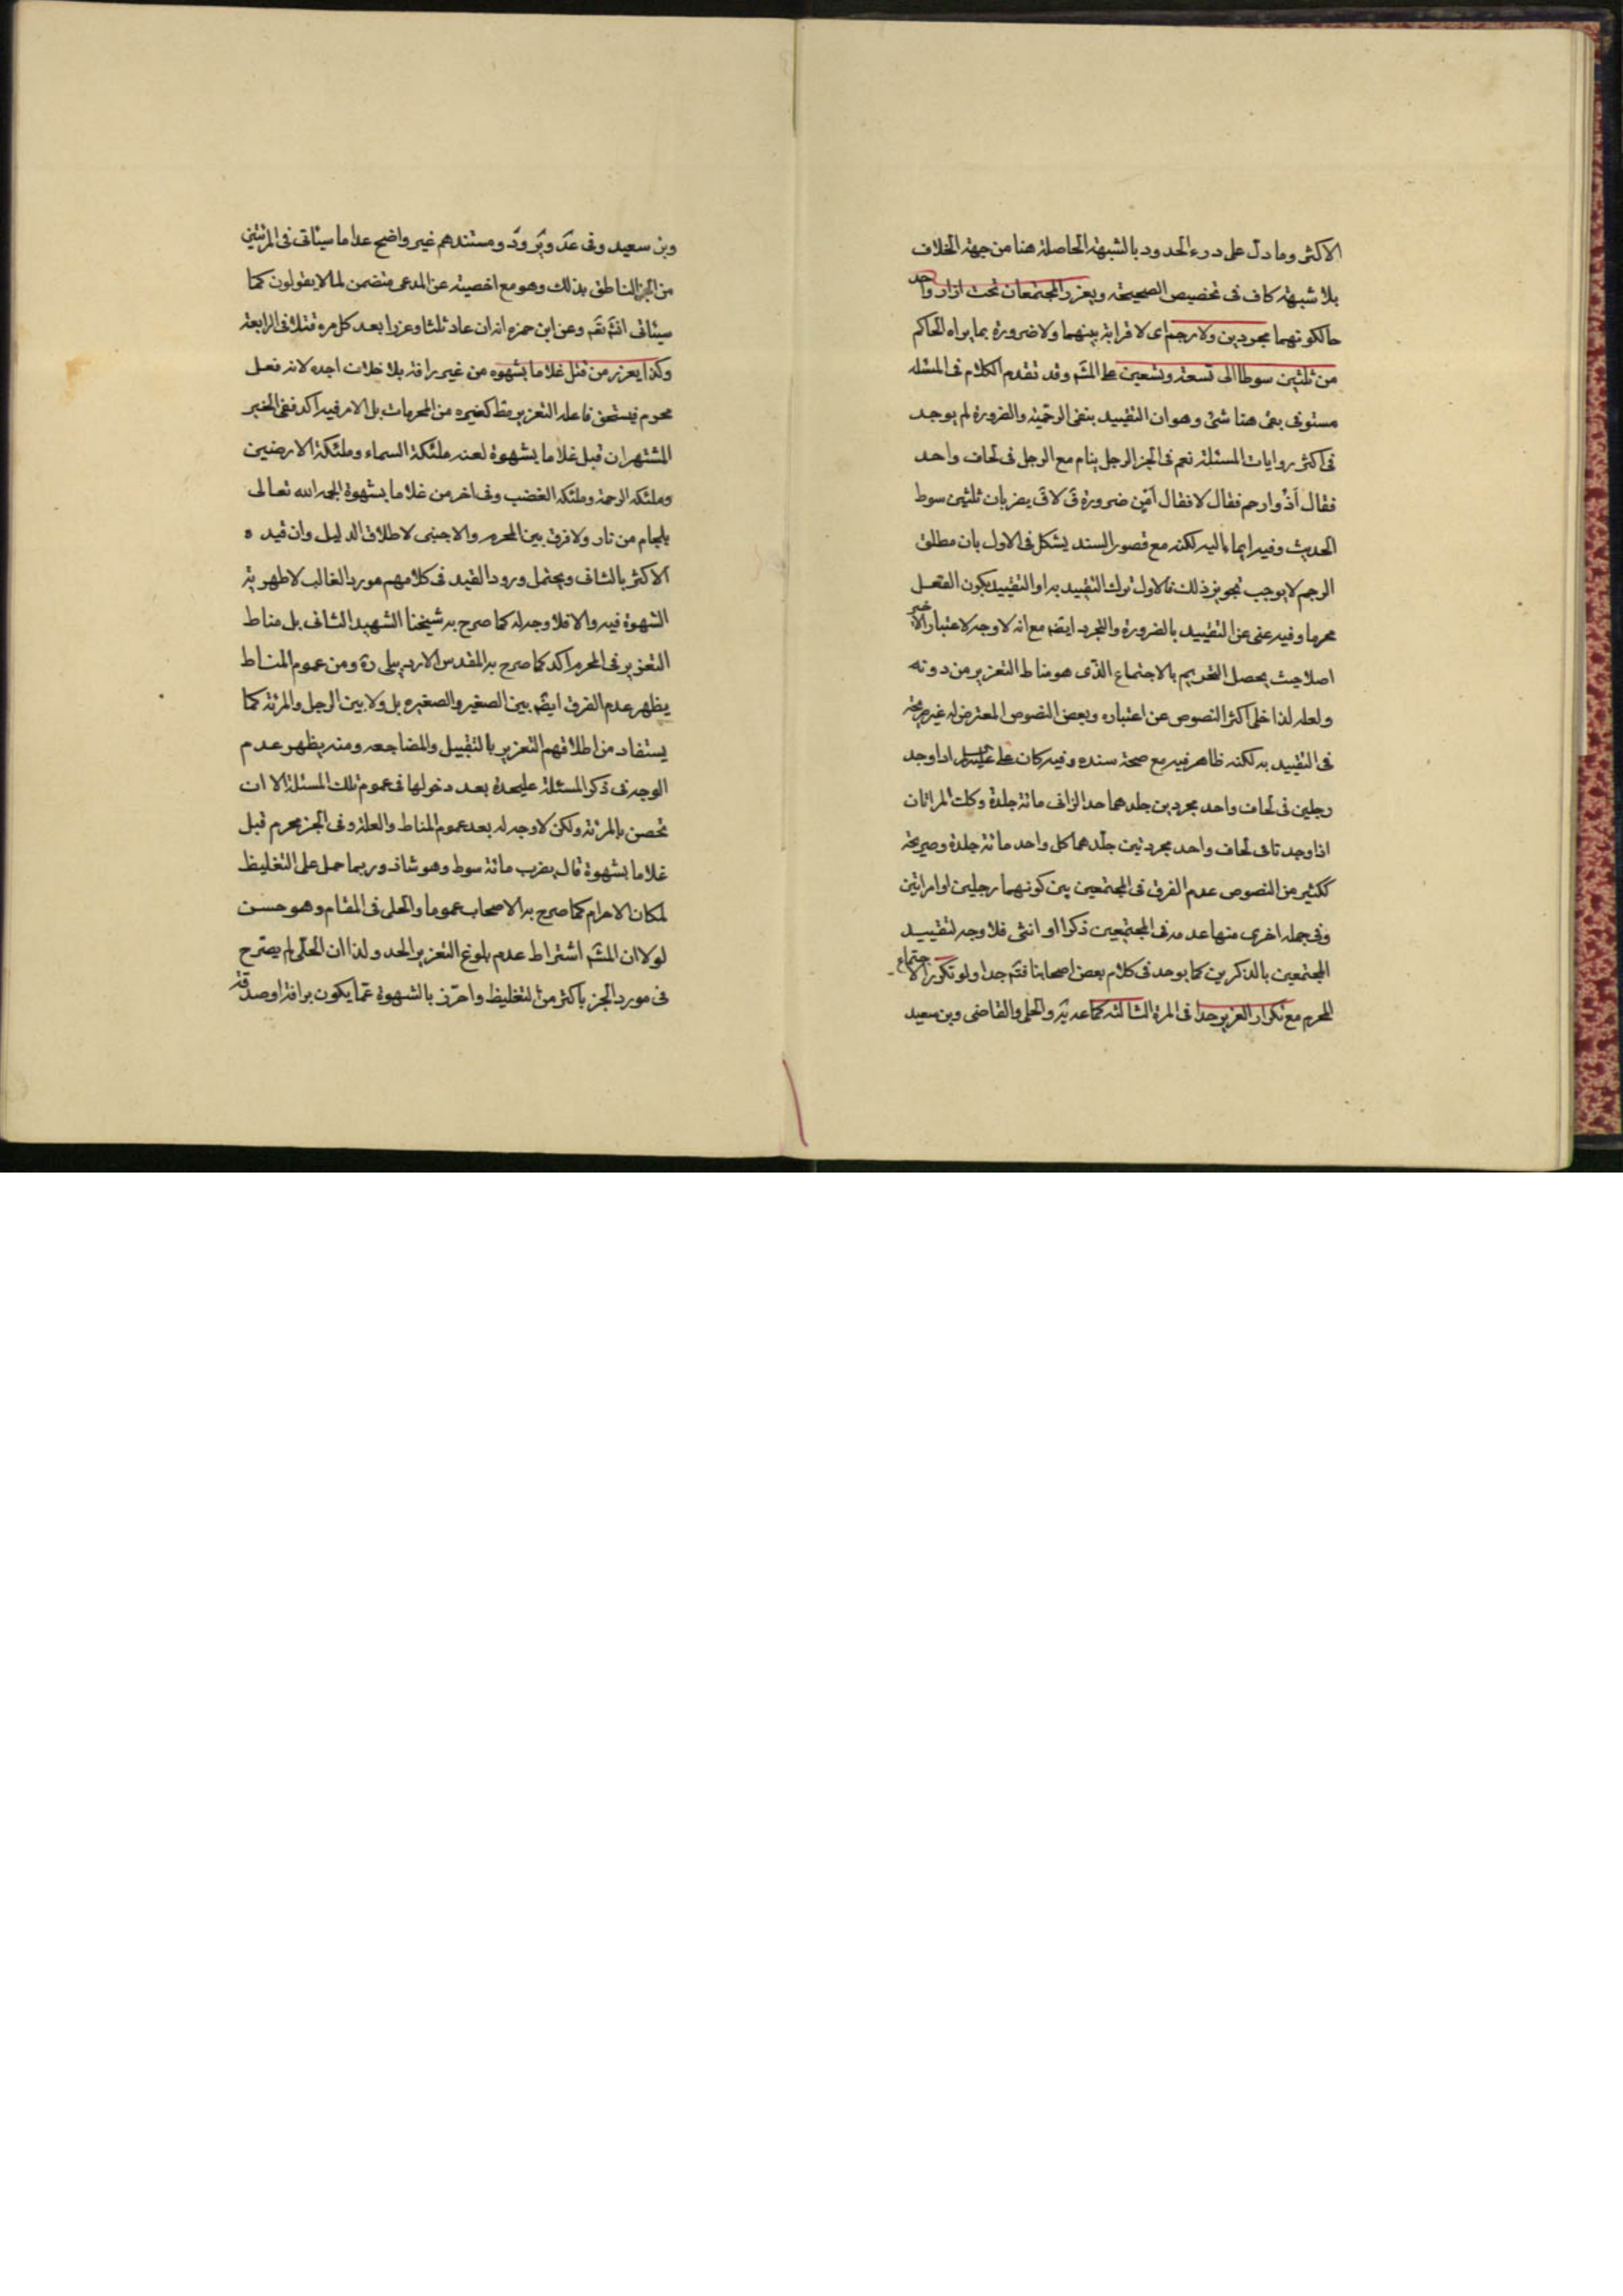 الاكثر وما دل على درء الحدود بالشبهة الحاصلة هنا من جهة الخلاف
بلا شبهة كاف فى تخصيص الصحيحه ويعزر المجتمعان تحت ازار واحد
حالكونهما مجردين ولا رحم اى لا قرابة بينهما ولا ضرورة بما يراه الحاكم
من ثلثين سوطا الى تسعة وتسعين على المشه وقد تقدم الكلام فى المسئله
مستوفى بقى هنا شئ وهو ان التقييد بنفى الرحميه والضرورة لم يوجد
فى اكثر روايات المسئلة نعم فى الخبر الرجل ينام مع الرجل فى لحاف واحد
فقال اذوا رحم فقال لا فقال امن ضرورة ق لا ق يضربان ثلثين سوط
الحديث وفيه ايماء اليه لكنه مع قصور السند يشكل فى الاول بان مطلق
الرحم لا يوجب تجويز ذلك فالاولى ترك التقييد به او التقييد بكون الفعل
محرما وفيه غنى عن التقييد بالضرورة والتجرد ايضه مع انه لا وجه لاعتبار الاخير
اصلا حيث يحصل التحريم بالاجتماع الذى هو مناط التعزير من دونه
ولعله لذا خلى اكثر النصوص عن اعتباره وبعض النصوص المعترض له غير صريحة
فى التقييد به لكنه ظاهر فيه مع صحة سنده وفيه كان على اذا وجد
رجلين فى لحاف واحد مجردين جلدهما حد الزانى مائة جلدة وكلت المراتان
اذا وجدتا فى لحاف واحد مجردتين جلدهما كل واحد مائة جلدة وصريحة
ككثير من النصوص عدم الفرق فى المجتمعين بين كونهما رجلين او امراتين
وفى جمله اخرى منها عدمه فى المجتمعين ذكرا او انثى فلا وجه لتقييد
المجتمعين بالذكرين كما يوجد فى كلام بعض اصحابنا فته جدا ولو تكرر الاجتماع
المحرم مع تكرار التعزير حدا فى المرة الثالثه كما عه يه والحلى والقاضى وبن سعيد
وبن سعيد وفى عد وير ود ومستندهم غير واضح عدا ما سيئاتى فى المرئتين
من الخبر الناطق بذلك وهو مع اخصيته عن المدعى متضمن لما لا يقولون كما
سيئاتى انشه تعه وعن ابن حمزه انه ان عاد ثلثا وعزرا بعد كل مره قتلا فى الرابعة
وكذا يعزر من قبل غلاما بشهوه من غير رافة بلا خلاف اجده لانه فعل
محرم فيستحق فاعله التعزير مط كغيره من المحرمات بل الامر فيه اكد ففى الخبر
المشتهر ان قبل غلاما بشهوة لعنه ملئكة السماء وملئكة الارضين
وملئكه الرحمة وملئكه الغضب وفى اخر من غلاما بشهوة الجمه الله تعالى
بلجام من نار ولا فرق بين المحرم والاجنبى لاطلاق الدليل وان قيده
الاكثر بالثانى ويحتمل ورود القيد فى كلامهم مورد الغالب لاظهرية
الشهوة فيه والا فلا وجه له كما صرح به شيخنا الشهيد الثانى بل مناط
التعزير فى المحرم اكد كما صرح به المقدس الاردبيلى ره ومن عموم المناط
يظهر عدم الفرق ايضه بين الصغير والصغيره بل ولا بين الرجل والمرئة كما
يستفاد من اطلاقهم التعزير بالتقبيل والمضاجعه ومنه يظهر عدم
الوجه فى ذكر المسئلة عليحدة بعد دخولها فى عموم تلك المسئلة الا ان
تخص بالمرئة ولكن لا وجه له بعد عموم المناط والعلة وفى الخبر محرم قبل
غلاما بشهوة قال يضرب مائة سوط وهو شاذ وربما حمل على التغليظ
لمكان الاحرام كما صرح به الاصحاب عموما والحلى فى المقام وهو حسن
لولا ان المشه اشتراط عدم بلوغ التعزير الحد ولذا ان الحلى لم يصرح
فى مورد الخبر باكثر من التغليظ واحترز بالشهوة عما يكون برافة او صداقة